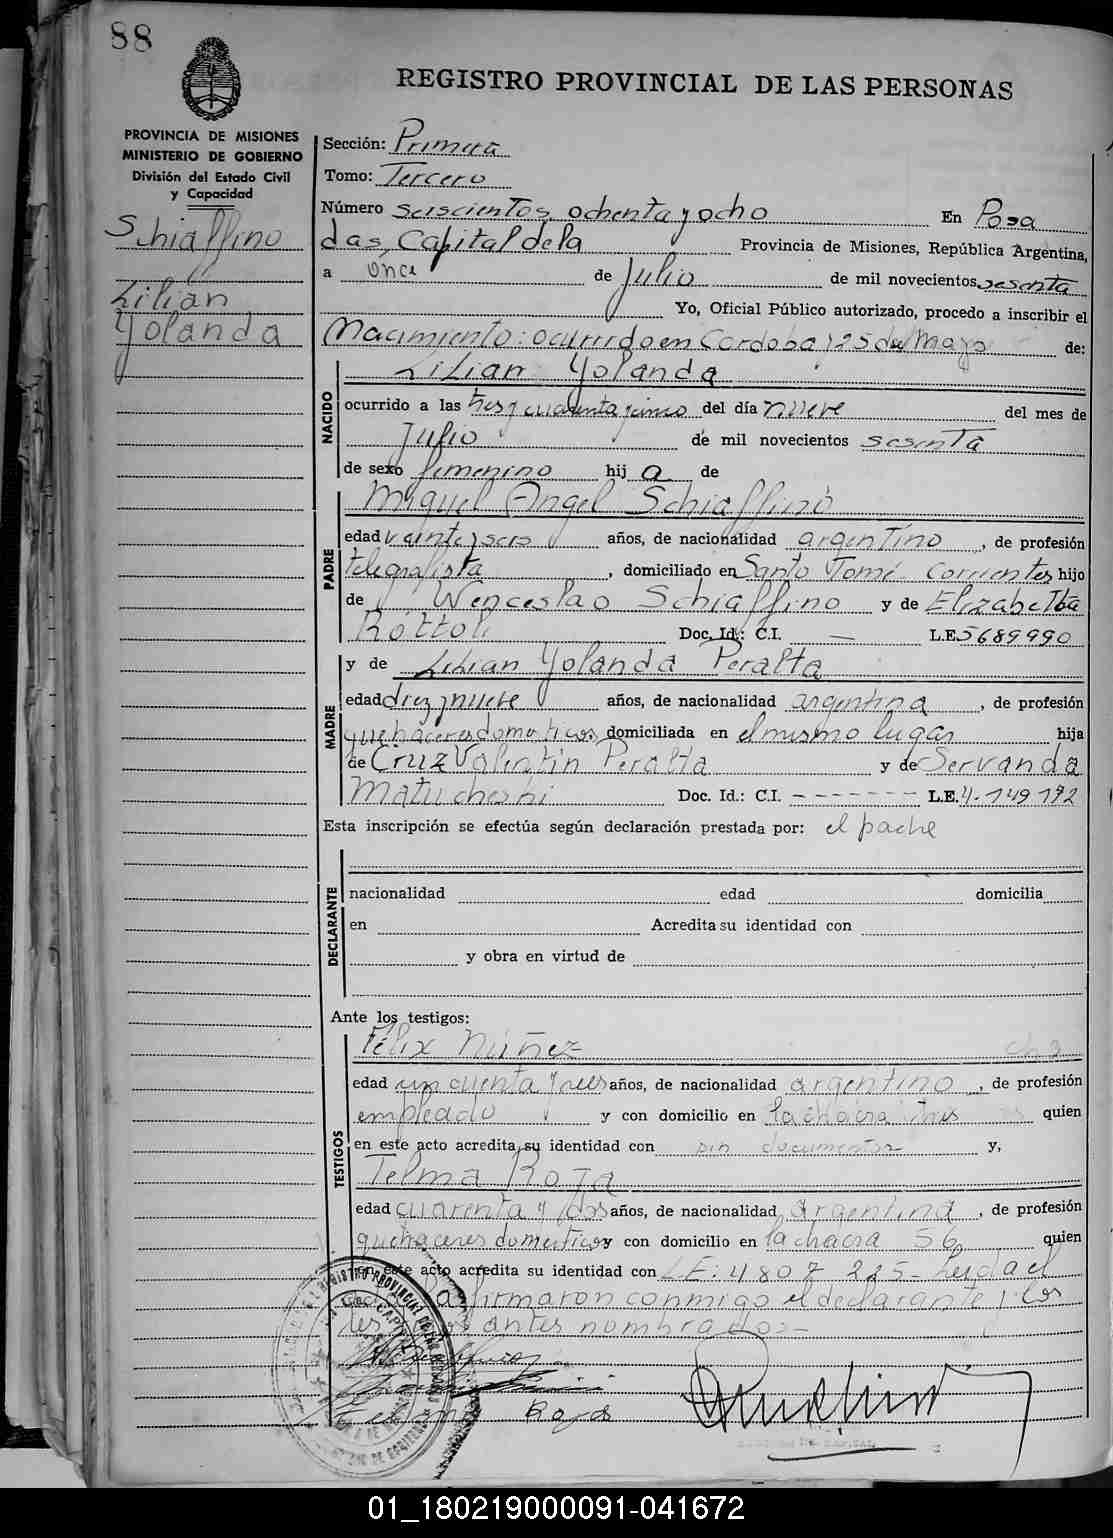 88
REGISTRO PROVINCIAL DE LAS PERSONAS
PROVINCIA DE MISIONES
MINISTERIO DE GOBIERNO
División del Estado Civil
y Capacidad
Schiaffino
Lilian
Yolanda
Sección: Primera
Tomo: Tercero
Número seiscientos ochenta y ocho En Posa
das, Capital de la Provincia de Misiones, República Argentina,
a once de Julio de mil novecientos sesenta
Yo, Oficial Público autorizado, procedo a inscribir el
Nacimiento: ocurrido en Cordoba y 25 de Mayo de:
NACIDO
Lilian Yolanda
ocurrido a las tres y cuarenta y cinco del día nueve del mes de
Julio de mil novecientos sesenta
de sexo femenino hij a de
PADRE
Miguel Angel Schiaffino
edad veinte y seis años, de nacionalidad argentino, de profesión
telegrafista, domiciliado en Santo Tomé Corrientes hijo
de Wenceslao Schiaffino y de Elizabetta
Rottoli Doc. Id.: C.I. — L.E. 5689990
MADRE
y de Lilian Yolanda Peralta
edad diez y nueve años, de nacionalidad argentina, de profesión
quehaceres domesticos, domiciliada en el mismo lugar hija
de Cruz Valentin Peralta y de Servanda
Matucheski Doc. Id.: C.I. -------- L.E. 4.149.172
Esta inscripción se efectúa según declaración prestada por: el padre
DECLARANTE
nacionalidad edad domicilia
en Acredita su identidad con
y obra en virtud de
Ante los testigos:
TESTIGOS
Félix Núñez
edad cincuenta y tres años, de nacionalidad argentino, de profesión
empleado y con domicilio en la chacra tres quien
en este acto acredita su identidad con sin documentos y,
Telma Roja
edad cuarenta y dos años, de nacionalidad argentina, de profesión
quehaceres domesticos y con domicilio en la chacra 56 quien
en este acto acredita su identidad con L.E: 4807 225- Leída el
la firmaron conmigo el declarante y los
tes antes nombrados-
Rojas
01_180219000091-041672